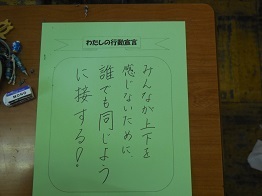 わたしの行動宣言
みんなが上下を
感じないために、
誰でも同じよう
に接する！